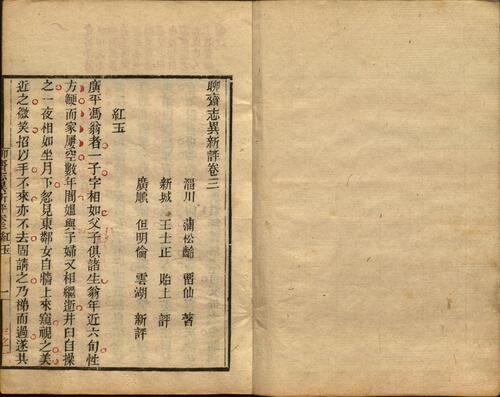 聊齋志異新評卷三
淄川 蒲松齡 畱仙 著
新城 王士正 貽上 評
廣順 但明倫 雲湖 新評
紅玉
廣平馮翁者一子字相如父子俱諸生翁年近六旬性
方鯁而家屢空數年間媼與子婦又相繼逝井臼自操
之一夜相如坐月下忽見東鄰女自牆上來窺視之美
近之微笑招以手不來亦不去固請之乃梯而過遂共
聊齋志異新評卷三 紅玉 一